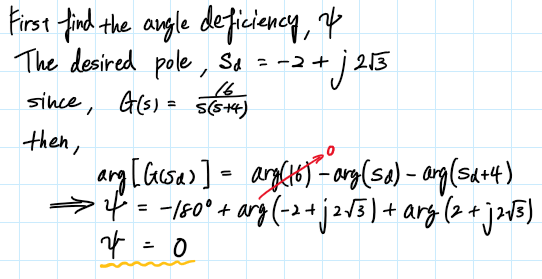 First find the angle deficiency, ψ
The desired pole, Sd = -2 + j 2√3
since, G(s) = 16/s(s+4)
then,
arg[G(sd)] = arg(16) - arg(sd) - arg(sd+4)
0
⟹ ψ = -180° + arg(-2 + j 2√3) + arg(2 + j 2√3)
ψ = 0